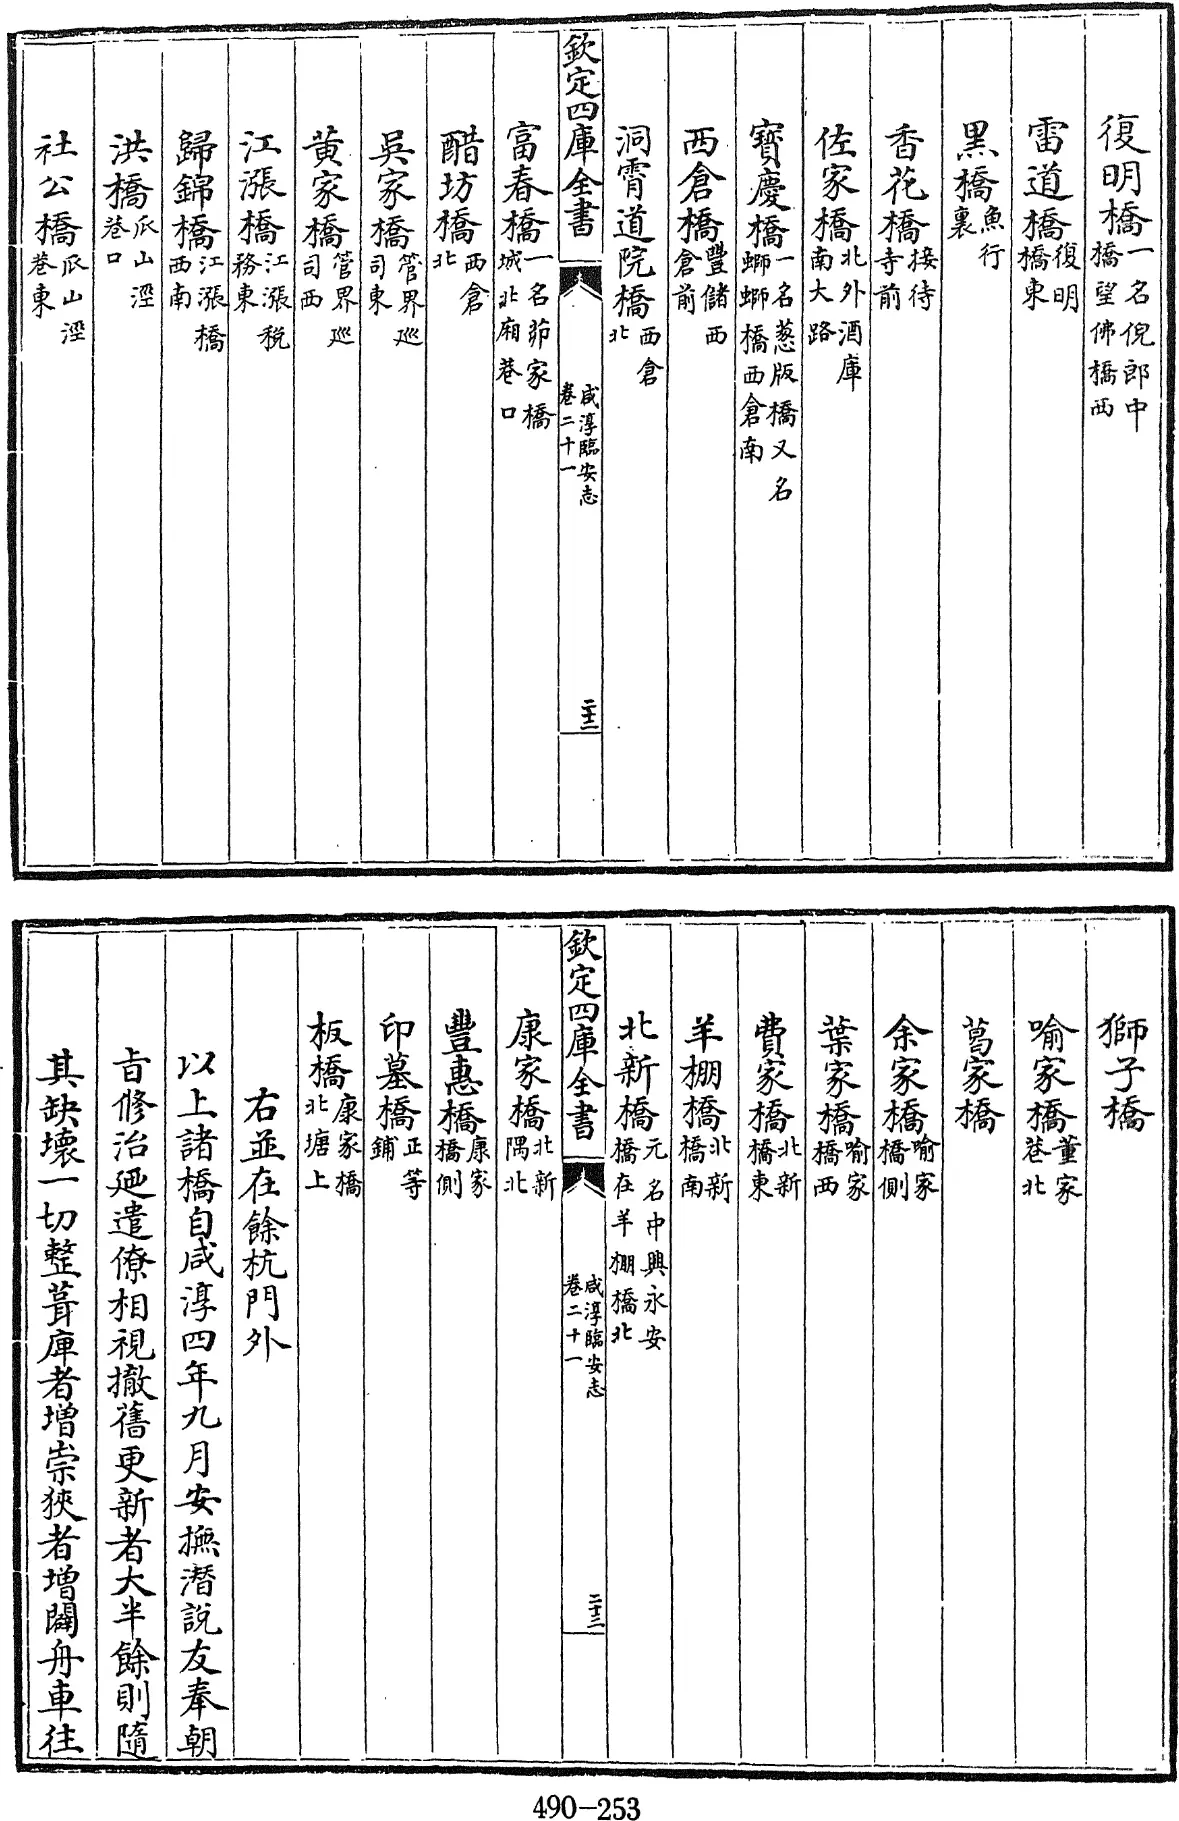 復明橋一名倪郎中橋望佛橋西
雷道橋復明橋東
黑橋魚行裏
香花橋接待寺前
佐家橋北外酒庫南大路
寶慶橋一名葱版橋又名螄螄橋西倉南
西倉橋豐儲西倉前
洞霄道院橋西倉北
欽定四庫全書
咸淳臨安志
卷二十一
二十二
富春橋一名茆家橋城北廂巷口
醋坊橋西倉北
吳家橋管界巡司東
黃家橋管界巡司西
江漲橋江漲稅務東
歸錦橋江漲橋西南
洪橋瓜山涇巷口
社公橋瓜山涇巷東
獅子橋
喻家橋董家巷北
葛家橋
余家橋喻家橋側
葉家橋喻家橋西
費家橋北新橋東
羊棚橋北新橋南
北新橋元名中興永安橋在羊棚橋北
欽定四庫全書
咸淳臨安志
卷二十一
二十三
康家橋北新隅北
豐惠橋康家橋側
印墓橋正等鋪
板橋康家橋北塘上
右並在餘杭門外
以上諸橋自咸淳四年九月安撫潛說友奉朝
旨修治廼遣僚相視撤舊更新者大半餘則隨
其缺壞一切整葺庫者增崇狹者增闢舟車往
490-253